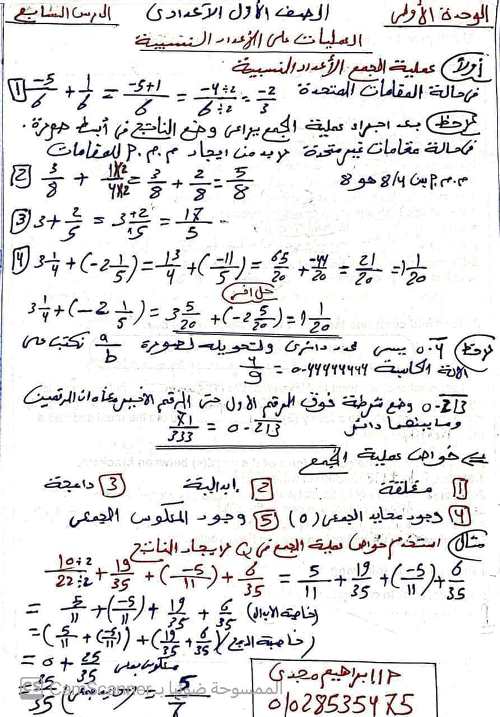 الوحدة الأولى الصف الأول الاعدادى الدرس السابع
العمليات على الأعداد النسبية
أولاً عملية الجمع الأعداد النسبية
فى حالة المقامات المتحدة
1 -5/6 + 1/6 = -5+1/6 = -4÷2/6÷2 = -2/3
لاحظ بعد اجراء عملية الجمع يراعى وضع الناتج فى أبسط صورة.
فى حالة مقامات غير متحدة لابد من ايجاد م.م.P للمقامات
2 3/8 + 1×2/4×2 = 3/8 + 2/8 = 5/8 م.م.P بين 8/4 هو 8
3 3 + 2/5 = 3 +2/5 = 17/5
4 3 1/4 + (-2 1/5) = 13/4 + (-11/5) = 65/20 + -44/20 = 21/20 = 1 1/20
حل آخر
3 1/4 + (-2 1/5) = 3 5/20 + (-2 /20) = 1 1/20
لاحظ 0.4 يسمى عدد دائرى ولتحويله لصورة a/b نكتب على
الآلة الحاسبة 0.44444444 = 4/9
0.213 وضع شرطة فوق الرقم الأول حتى الرقم الأخير معناه ان الرقمين
وما بينهما دائر 0.213 = 71/333
خواص عملية الجمع
1 مغلقة 2 إبدالية 3 دامجة
4 وجود محايد الجمعى (0) 5 وجود المعكوس الجمعى
مثال استخدم خواص عملية الجمع فى Q لإيجاد الناتج
10÷2/22÷2 + 19/35 + (-5/11) + 6/35 = 5/11 + 19/35 + (-5/11) + 6/35
= 5/11 + (-5/11) + 19/35 + 6/35 (خاصية الابدال)
= (5/11 + (-5/11)) + (19/35 + 6/35) (خاصية الدمج)
= 0 + 25/35 معكوس جمعى
/35 = 5/7
م/ ابراهيم مجدى
01028535475
CS الممسوحة ضوئيا بـ CamScanner